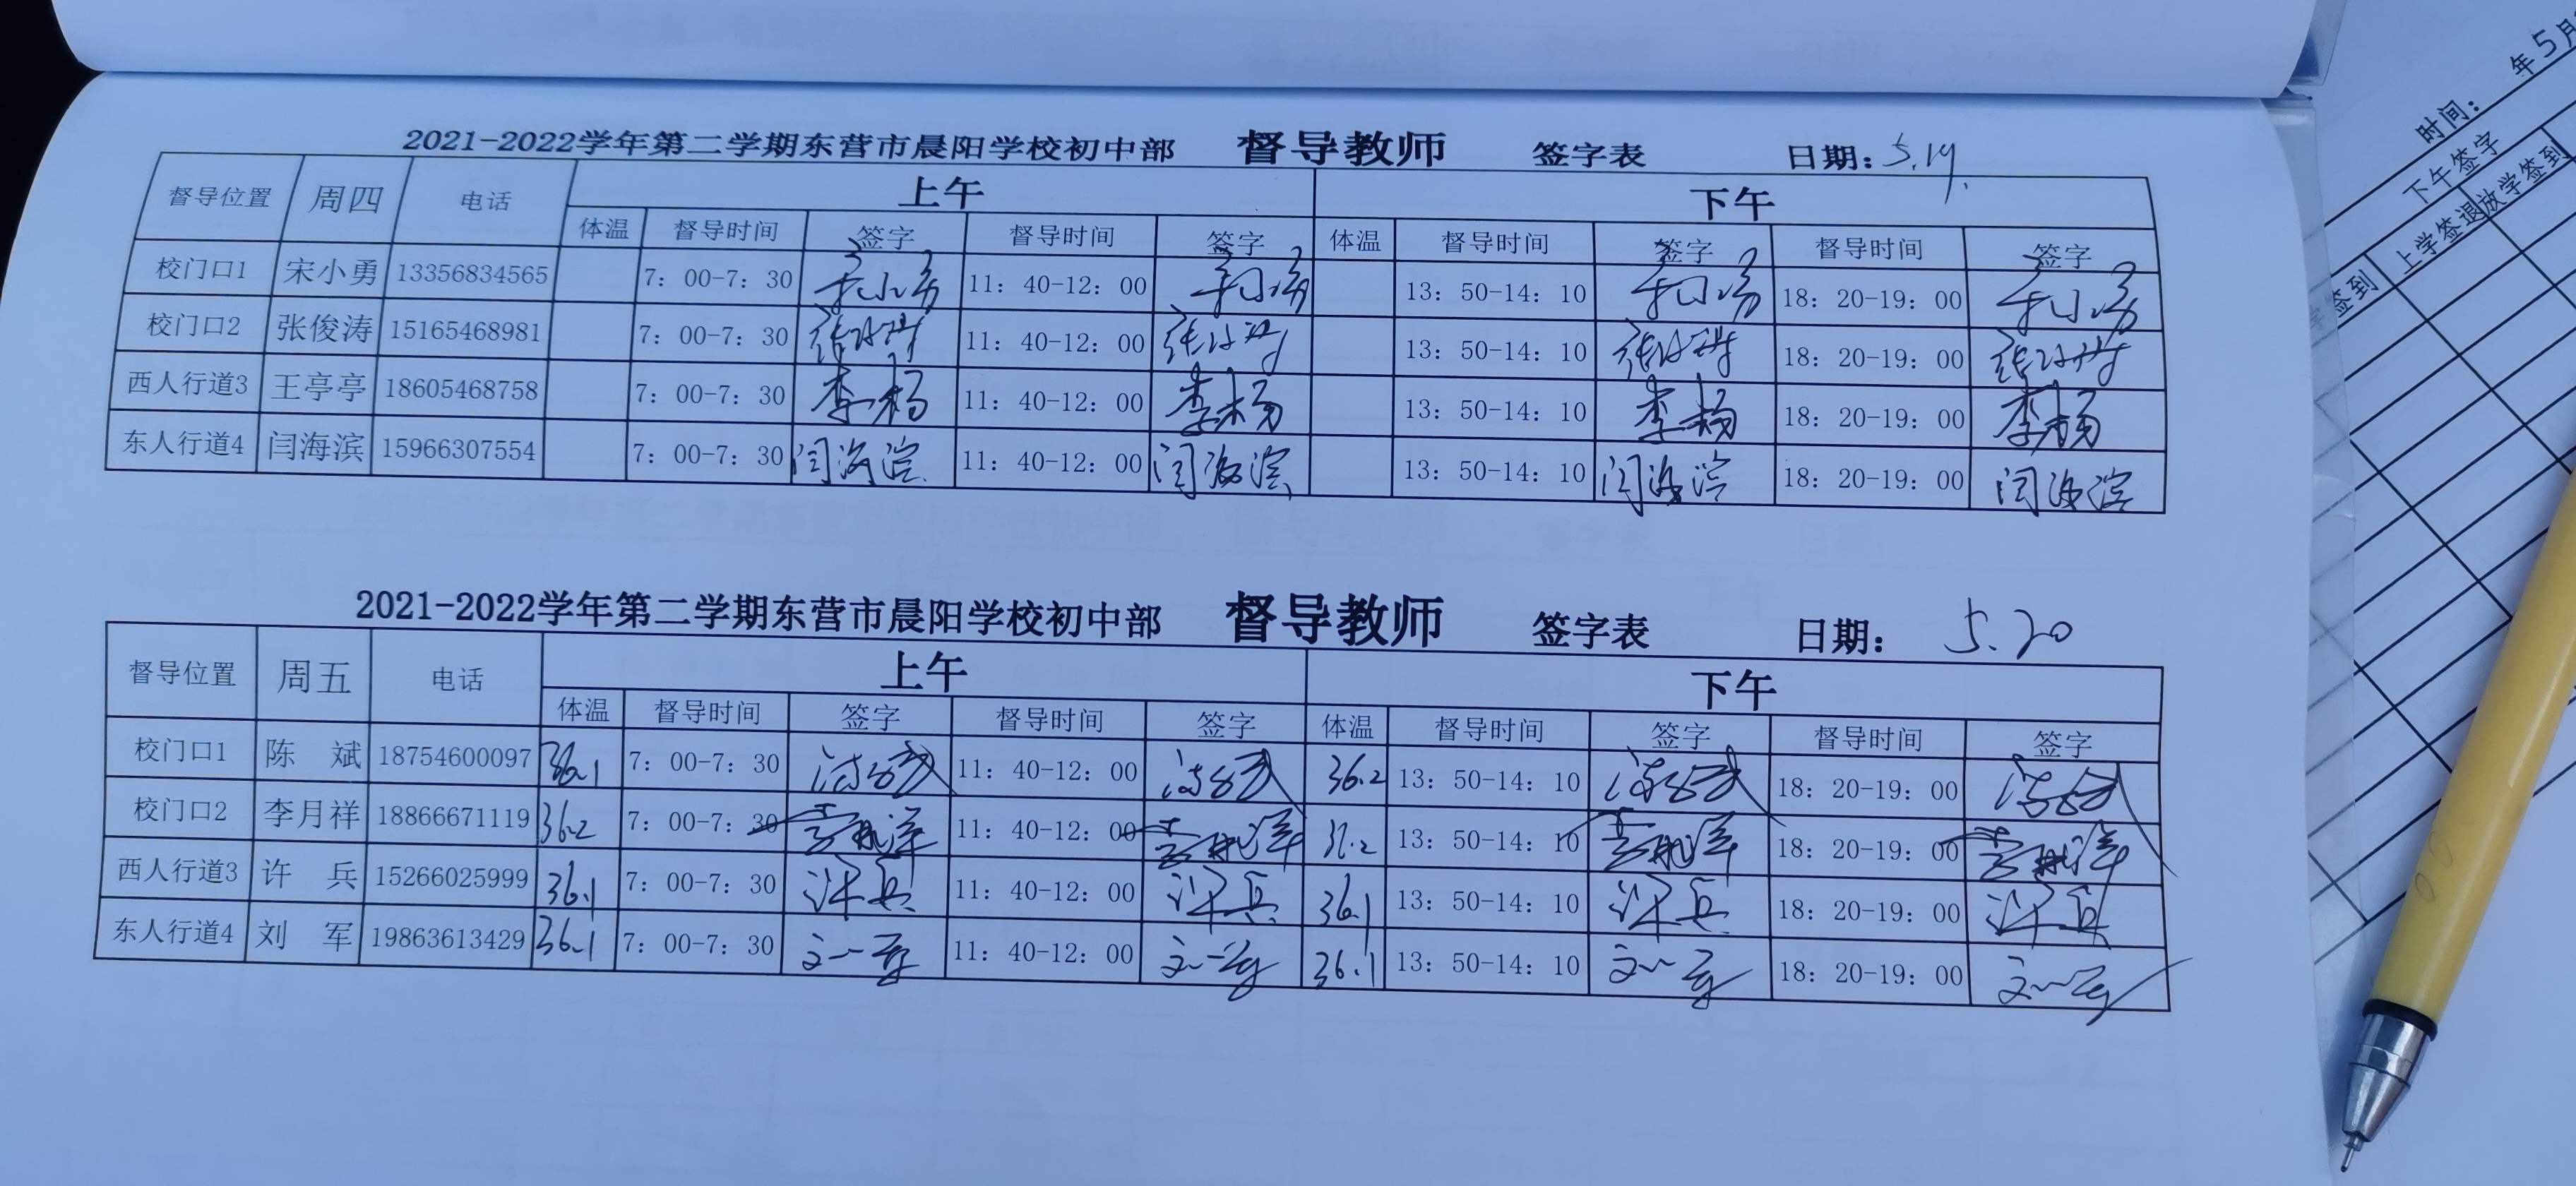 2021-2022学年第二学期东营市晨阳学校初中部 督导教师 签字表 日期: 5.19.
督导位置 周四 电话 上午 下午
体温 督导时间 签字 督导时间 签字 体温 督导时间 签字 督导时间 签字
校门口1 宋小勇 13356834565 7：00-7：30 宋小勇 11：40-12：00 宋小勇 13：50-14：10 宋小勇 18：20-19：00 宋小勇
校门口2 张俊涛 15165468981 7：00-7：30 11：40-12：00 13：50-14：10 18：20-19：00
西人行道3 王亭亭 18605468758 7：00-7：30 李杨 11：40-12：00 李杨 13：50-14：10 李杨 18：20-19：00 李杨
东人行道4 闫海滨 15966307554 7：00-7：30 闫海滨 11：40-12：00 闫海滨 13：50-14：10 闫海滨 18：20-19：00 闫海滨
2021-2022学年第二学期东营市晨阳学校初中部 督导教师 签字表 日期: 5.20
督导位置 周五 电话 上午 下午
体温 督导时间 签字 督导时间 签字 体温 督导时间 签字 督导时间 签字
校门口1 陈 斌 18754600097 36.1 7：00-7：30 11：40-12：00 36.2 13：50-14：10 18：20-19：00
校门口2 李月祥 18866671119 36.2 7：00-7：30 11：40-12：00 13：50-14：10 18：20-19：00
西人行道3 许 兵 15266025999 36.1 7：00-7：30 许兵 11：40-12：00 许兵 36.1 13：50-14：10 许兵 18：20-19：00 许兵
东人行道4 刘 军 19863613429 36.1 7：00-7：30 刘军 11：40-12：00 刘军 36.1 13：50-14：10 刘军 18：20-19：00 刘军
时间： 年5月
下午签字
签到 上学签退 放学签到